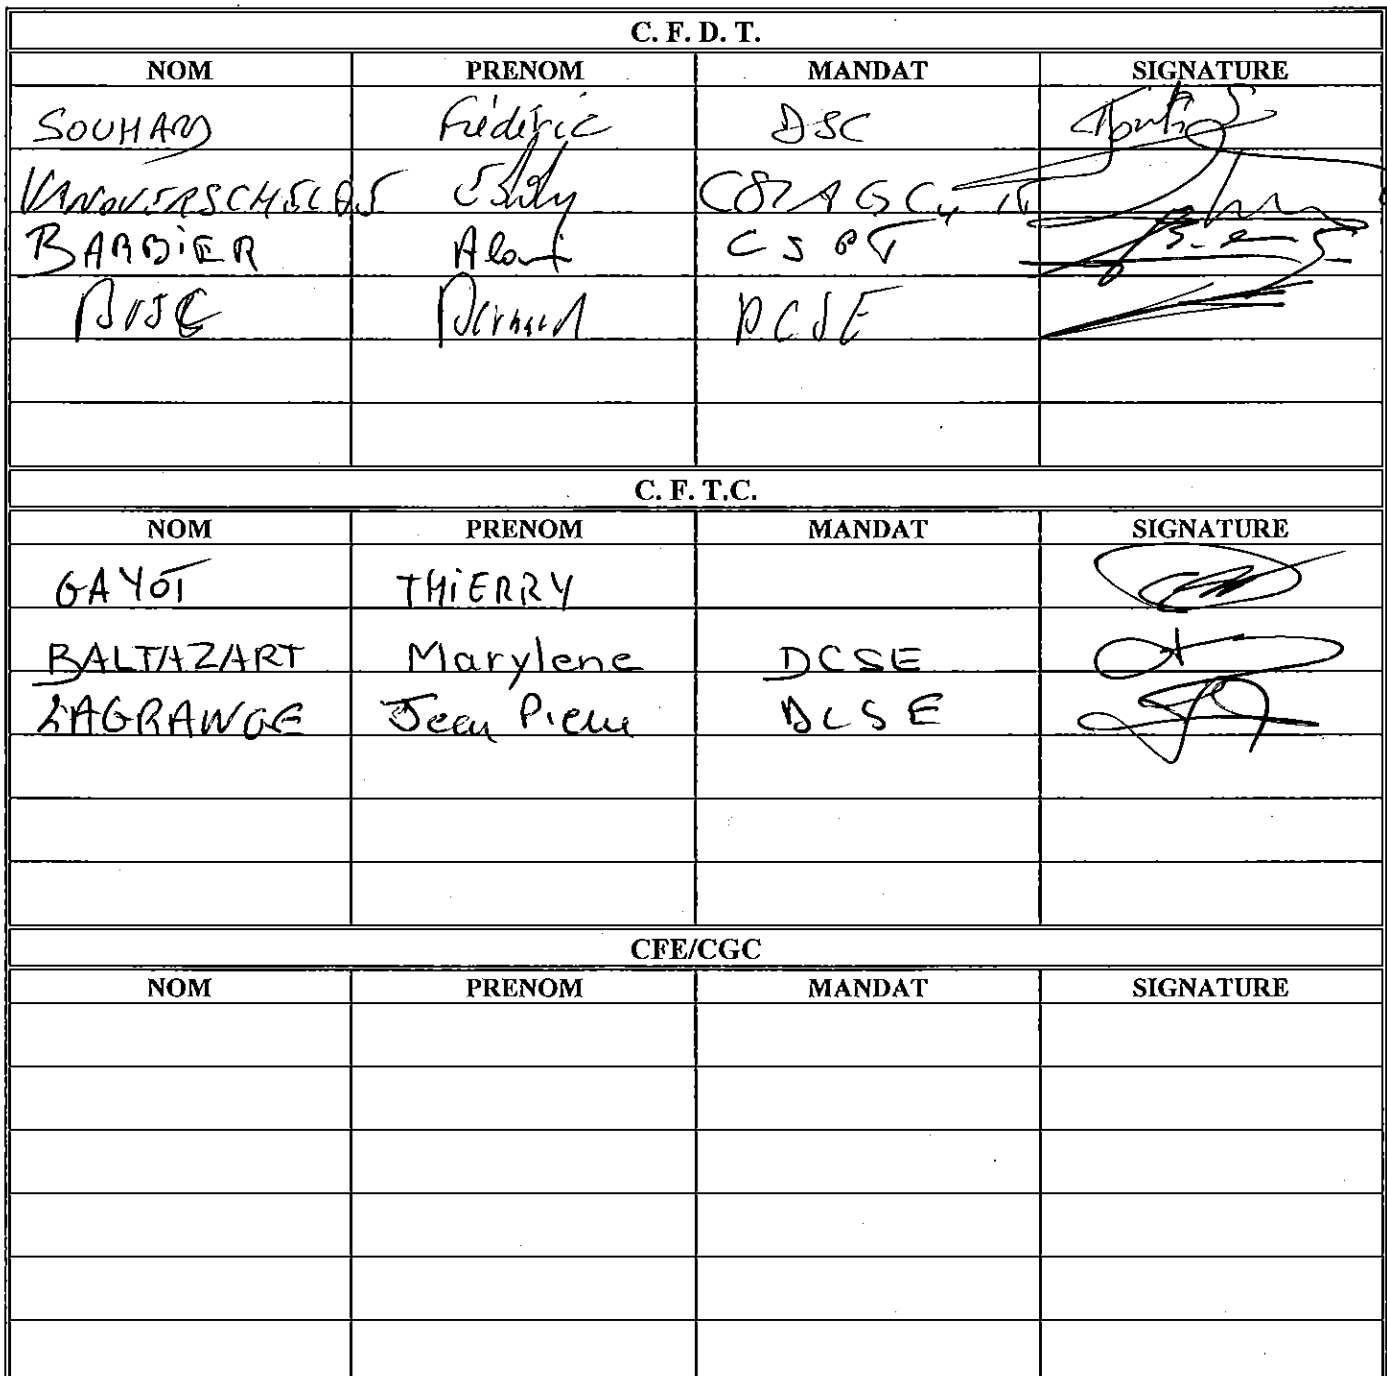 C. F. D. T.
NOM PRENOM MANDAT SIGNATURE
SOUHARD Frédéric DSC
BARBIER Alain
Bernard DCSE
C. F. T.C.
NOM PRENOM MANDAT SIGNATURE
GAYOT THIERRY
BALTAZART Marylene DCSE
LAGRANGE Jean Pierre DCSE
CFE/CGC
NOM PRENOM MANDAT SIGNATURE